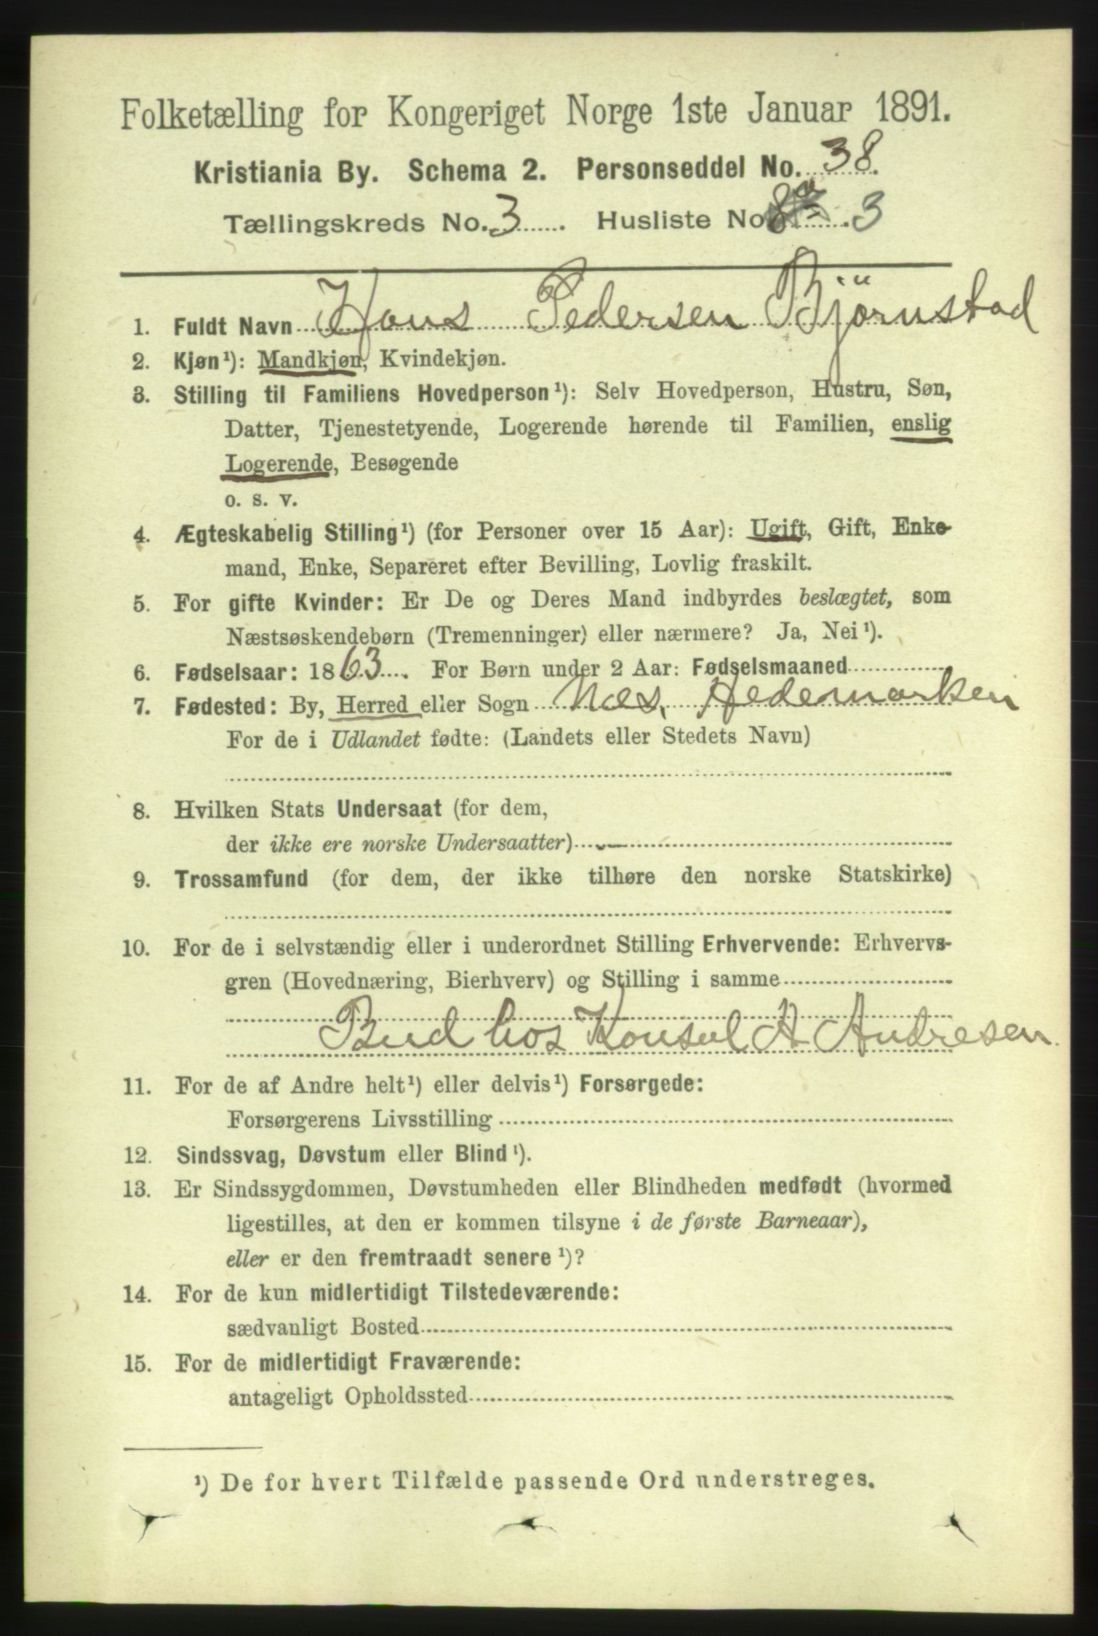 Folketælling for Kongeriget Norge 1ste Januar 1891.
Kristiania By. Schema 2. Personseddel No. 38.
Tællingskreds No. 3. Husliste No. 3
1. Fuldt Navn Hans Pedersen Björnstad
2. Kjøn¹): Mandkjøn, Kvindekjøn.
3. Stilling til Familiens Hovedperson¹): Selv Hovedperson, Hustru, Søn,
Datter, Tjenestetyende, Logerende hørende til Familien, enslig
Logerende, Besøgende
o. s. v.
4. Ægteskabelig Stilling¹) (for Personer over 15 Aar): Ugift, Gift, Enke-
mand, Enke, Separeret efter Bevilling, Lovlig fraskilt.
5. For gifte Kvinder: Er De og Deres Mand indbyrdes beslægtet, som
Næstsøskendebørn (Tremenninger) eller nærmere? Ja, Nei¹).
6. Fødselsaar: 1863. For Børn under 2 Aar: Fødselsmaaned
7. Fødested: By, Herred eller Sogn Næs, Hedemarken
For de i Udlandet fødte: (Landets eller Stedets Navn)
8. Hvilken Stats Undersaat (for dem,
der ikke ere norske Undersaatter)
9. Trossamfund (for dem, der ikke tilhøre den norske Statskirke)
10. For de i selvstændig eller i underordnet Stilling Erhvervende: Erhvervs-
gren (Hovednæring, Bierhverv) og Stilling i samme
Bud hos Konsul A Andresen
11. For de af Andre helt¹) eller delvis¹) Forsørgede:
Forsørgerens Livsstilling
12. Sindssvag, Døvstum eller Blind¹).
13. Er Sindssygdommen, Døvstumheden eller Blindheden medfødt (hvormed
ligestilles, at den er kommen tilsyne i de første Barneaar),
eller er den fremtraadt senere¹)?
14. For de kun midlertidigt Tilstedeværende:
sædvanligt Bosted
15. For de midlertidigt Fraværende:
antageligt Opholdssted
¹) De for hvert Tilfælde passende Ord understreges.